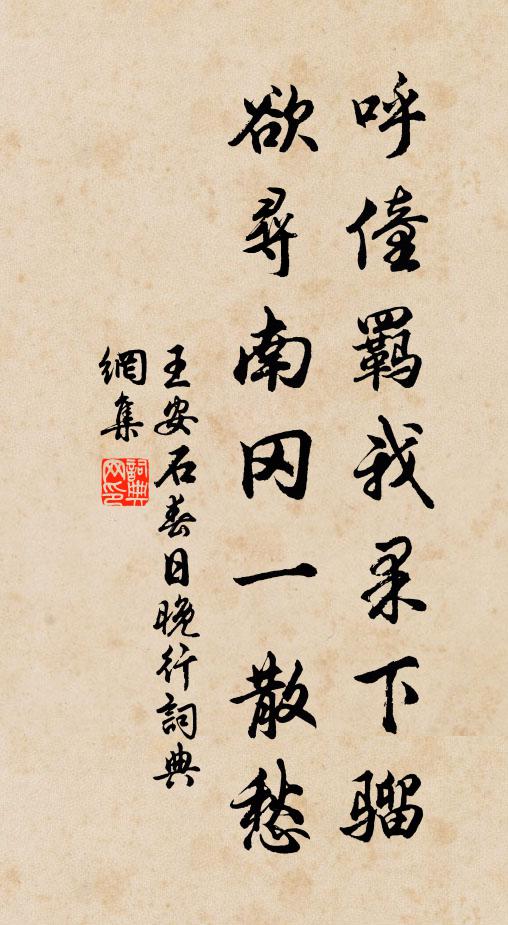 呼僮羁我果下骝
欲尋南冈一散愁
王安石春日晚行詞典
網集
詞典网印